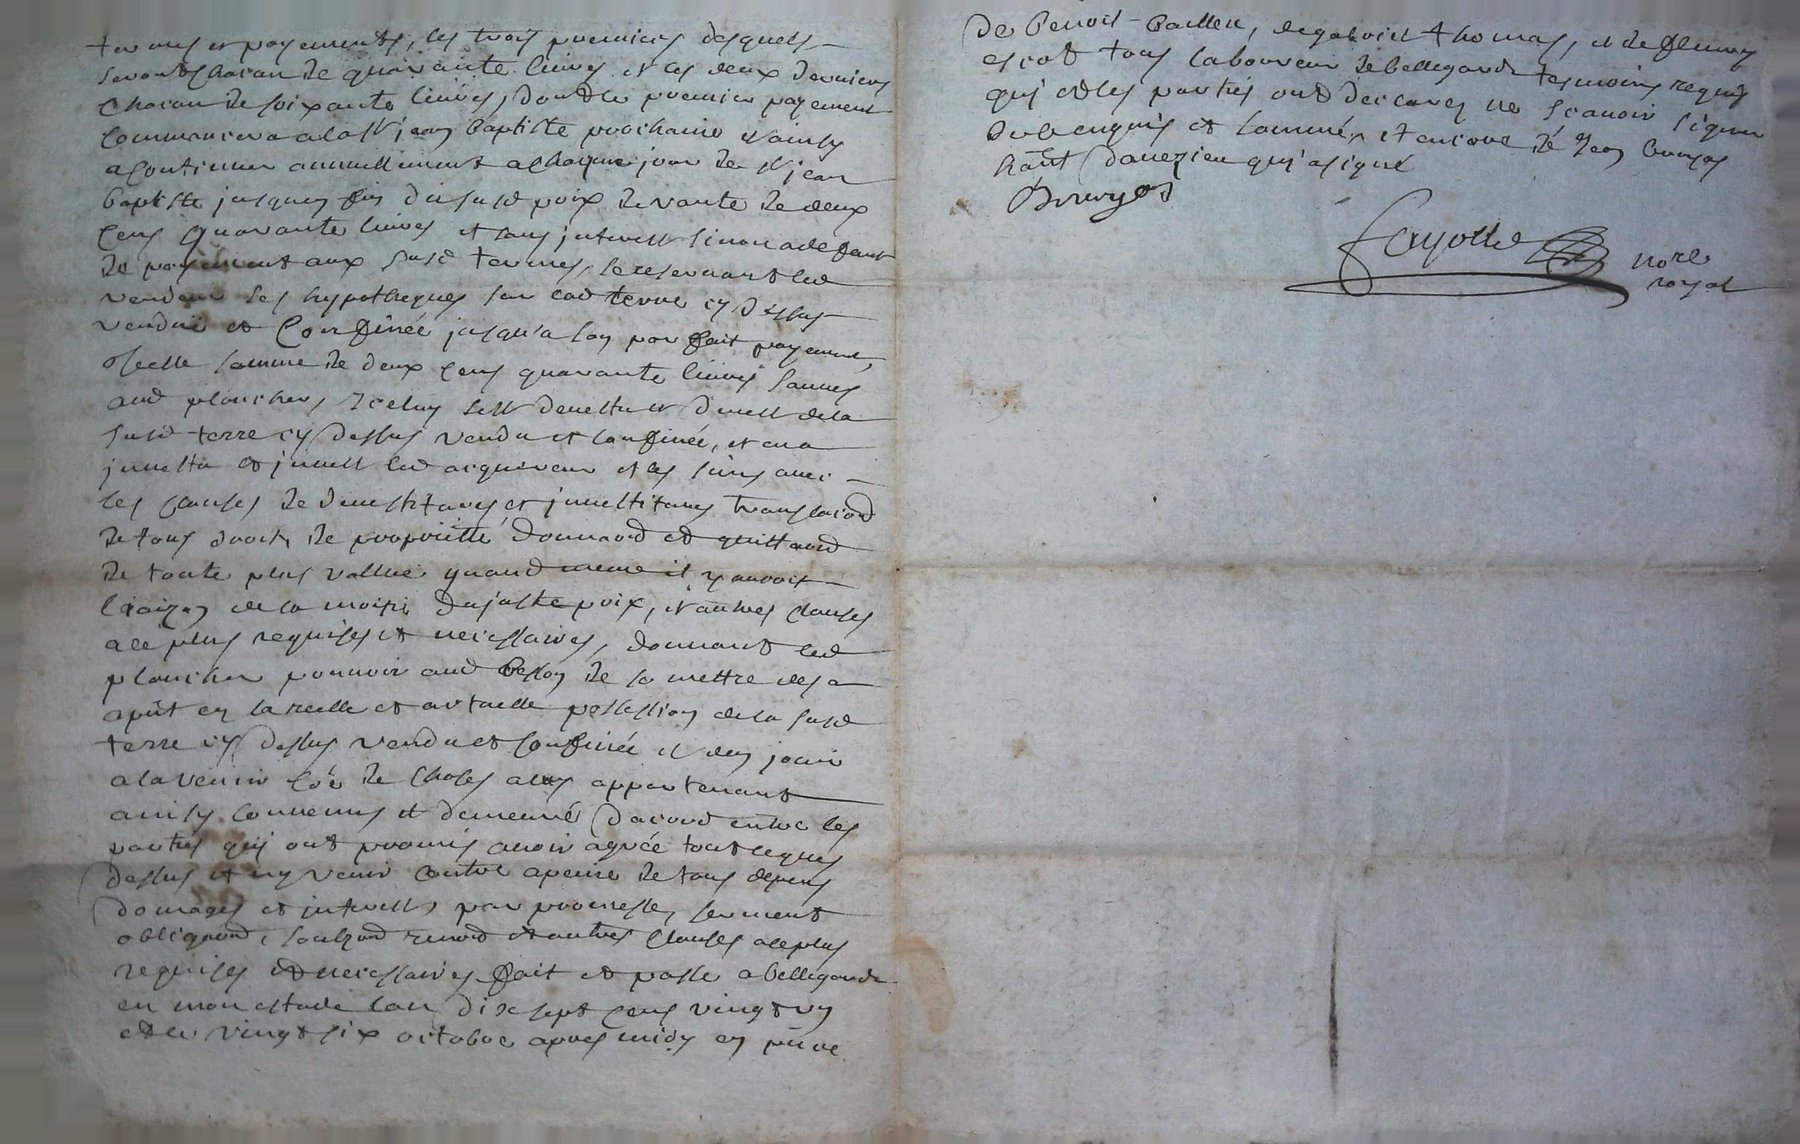 termes et payements, les trois premiers desquels
seront chacun de quarante livres et les deux derniers
chacun de soixante livres, dont le premier payement
commancera a la St jean baptiste prochaine et ainsy
a continuer annuellement a chaque jour de St jean
baptiste jusques fin du susd prix de vante de deux
cens quarante livres et sans interest sinon a deffaut
de payement aux susd termes, se reservant led
vendeur ses hypotheques sur lad terre cy dessus
vendue et confinée jusqu'a son parfait payement,
de celle somme de deux cens quarante livres
aud plancher, Iceluy s'est devestu et devest de la
susd terre cy dessus vendu et confinée, et en a
investu et invest led acquereur et les siens avec
les clauses de devestitures et investitures translaond
de tous droits de proprietté donnaond et quittaond
de toute plus vallue quand meme il y auroit
de la moitié du juste prix, et autres clauses
a ce plus requises et necessaires, donnant led
plancher pouvoir aud besson de se mettre des a
apnt en la reelle et actuelle possession de la susd
terre cy dessus vendu et confinée et den jouir
a lavenir coe de choses a luy appartenant
ainsy convenus et demeuré dacord entre les
parties qui ont promis avoir agréé tout ce que
dessus et ny venir contre a peine de tous depens
domages et interests, par promesse, serment
obligaond, renond et autres clauses a ce plus
requises et necessaires fait et passé a bellegarde
en mon estude lan dix sept cens vingt un
et le vingt six octobre apres midy en pnce
de Benoit et de
tous laboureur de bellegarde tesmoins requis
qui et les parties ont declarez ne scavoir signer
de ce enquis et sommés, et encore de Jean bruyas
hant qui a signé
Bruyas
Fayolle nore
royal